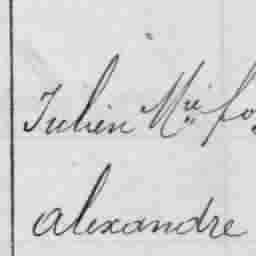 Julien Mie fo
Alexandre